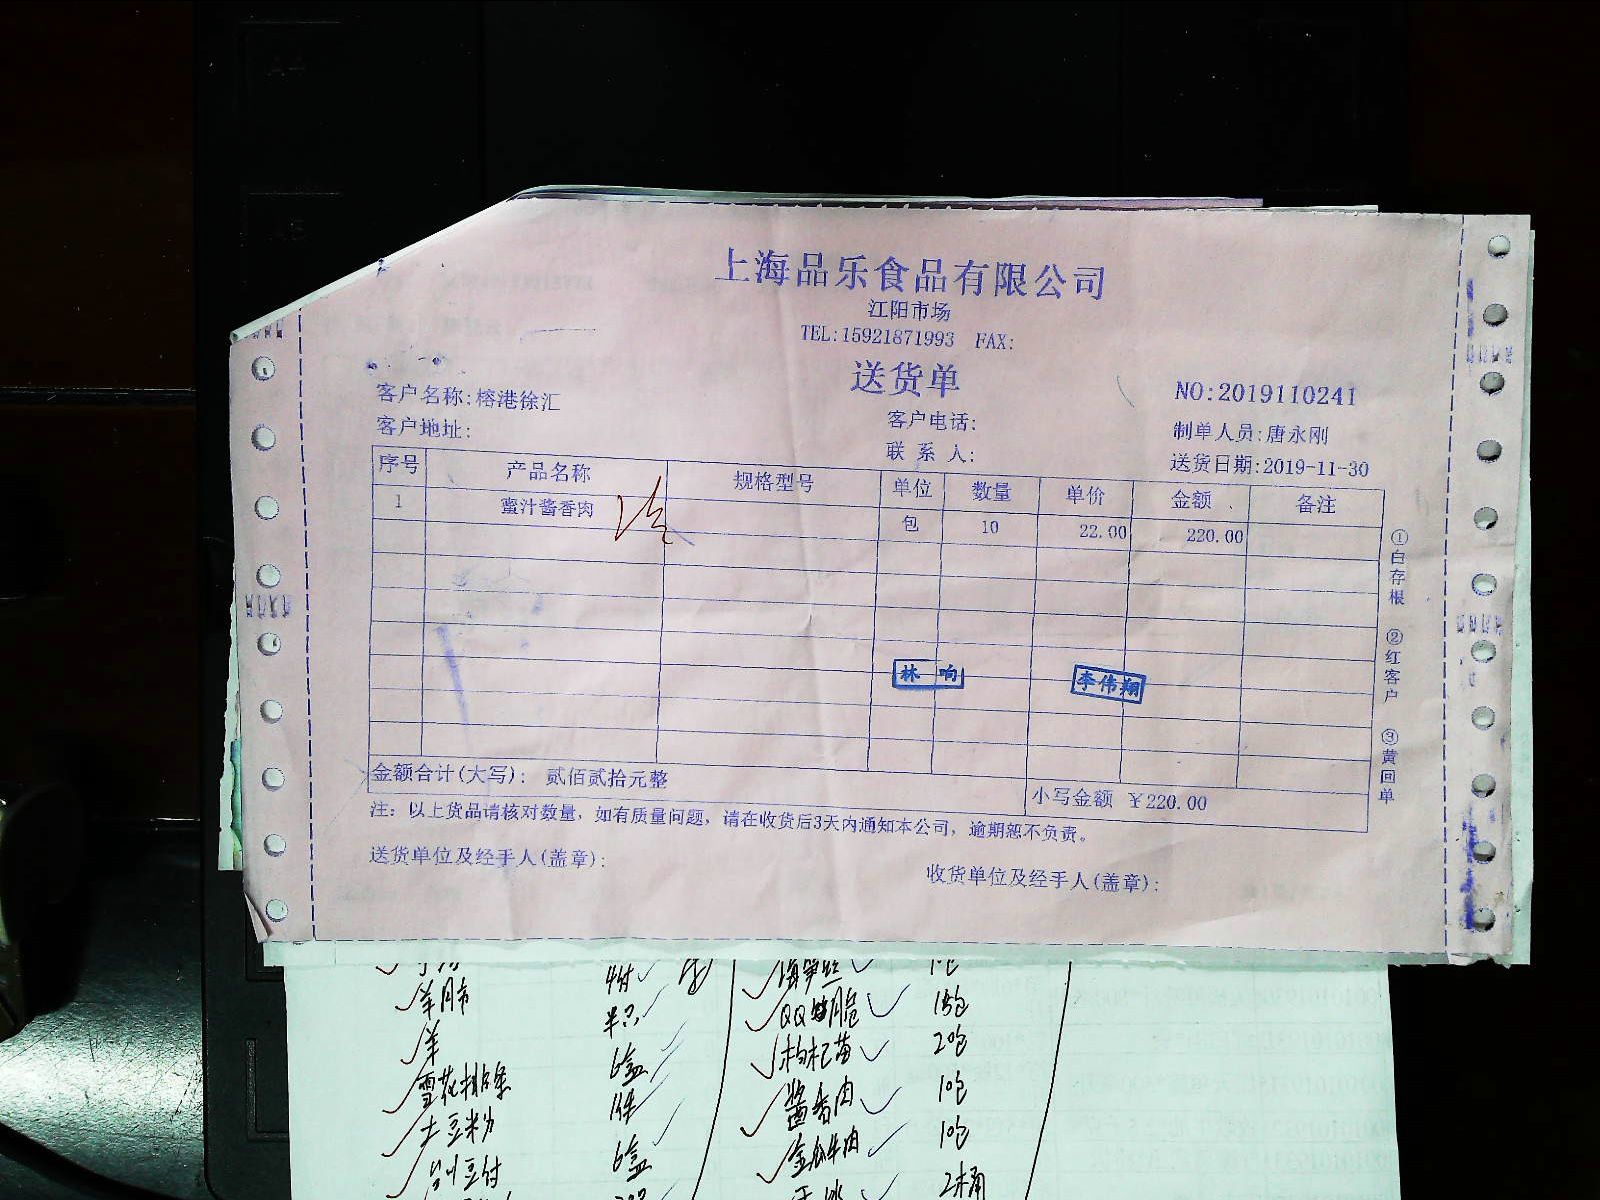 上海品乐食品有限公司
江阳市场
TEL:15921871993 FAX:
送货单
NO:2019110241
客户名称:榕港徐汇
客户电话:
制单人员:唐永刚
客户地址:
联系人:
送货日期:2019-11-30
序号 产品名称 规格型号 单位 数量 单价 金额 备注
1 蜜汁酱香肉 包 10 22.00 220.00
林响 李伟翔
金额合计(大写): 贰佰贰拾元整
小写金额 ¥220.00
注: 以上货品请核对数量, 如有质量问题, 请在收货后3天内通知本公司, 逾期恕不负责。
送货单位及经手人(盖章):
收货单位及经手人(盖章):
①白存根 ②红客户 ③黄回单
羊
6盒
枸杞苗 20包
雪花排条
酱香肉 10包
土豆粉 6盒
金瓜牛肉 10包
2桶